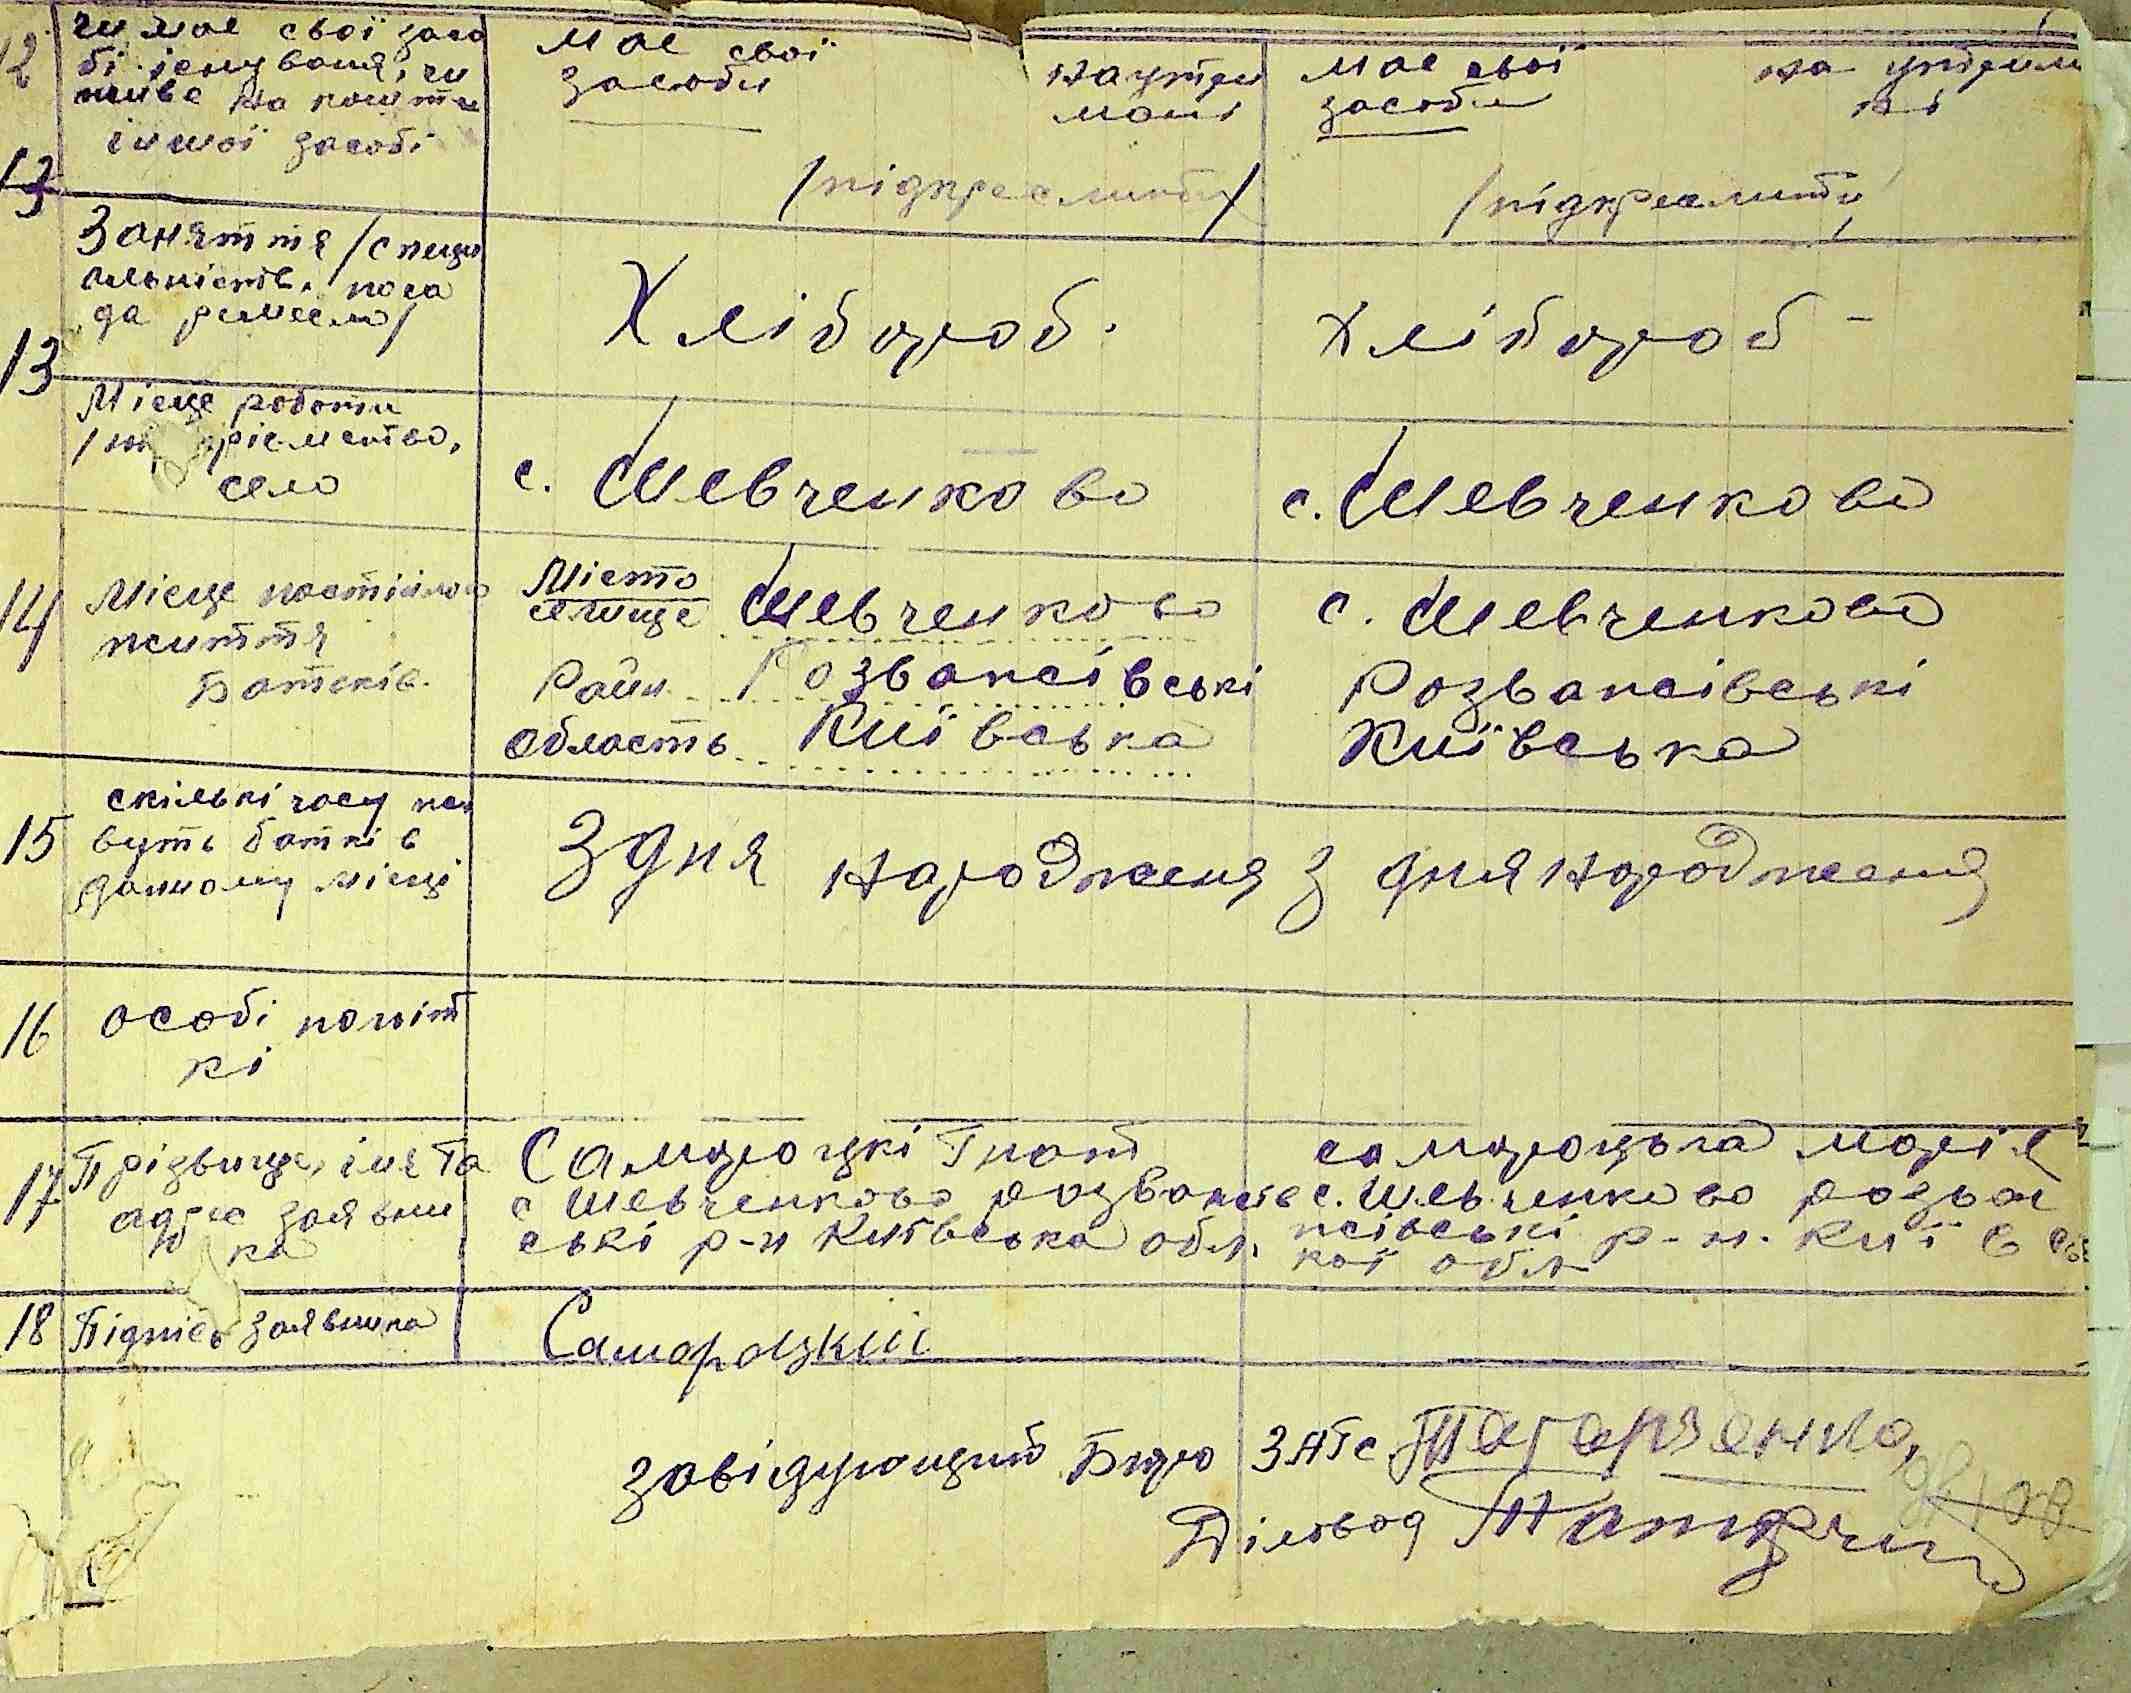 12 чи має свої засо
бі існуваня, чи
живе на кошти
іншої засобі
має свої
засоби
на утри
мані
має свої
засоби
на утрим
ні
/підкреслити/
/підкреслити/
13
Заняття /спеці
альність, поса
да ремесло/
Хлібороб.
Хлібороб -
13
Місце роботи
село
с. Шевченково
с. Шевченково
14 Місце постійного
життя
Батьків.
Місто
селище Шевченково
Район Розважівські
Область Київська
с. Шевченково
Розважівські
Київська
15 скількі часу жи
вуть баткі в
данному місці
З дня народженя
З дня народженя
16 особі поміт
кі
17 Прізвище, імя та
адрес заявни
ка
Самороцкі Гнат
с Шевченково розважів
ські р-н Київська обл.
самороцька марія
с. Шевченково розва
жівські р-н. Київ сь
кої обл
18 Підпісь заявника
Самороцкий
завідующий Бюро ЗАГС
Діловод